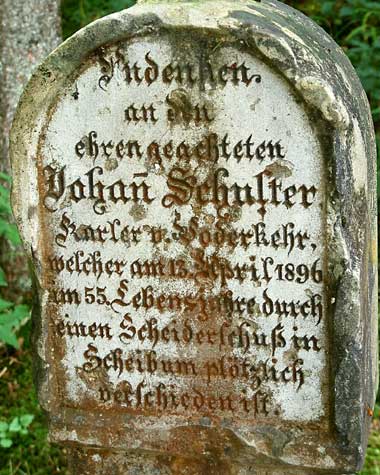 Andenken
an den
ehrengeachteten
Johañ Schuster
Karler v. Voderkehr,
welcher am 13. April 1896
im 55. Lebensjahre durch
einen Scheiderschuß in
Scheibum plötzlich
verschieden ist.